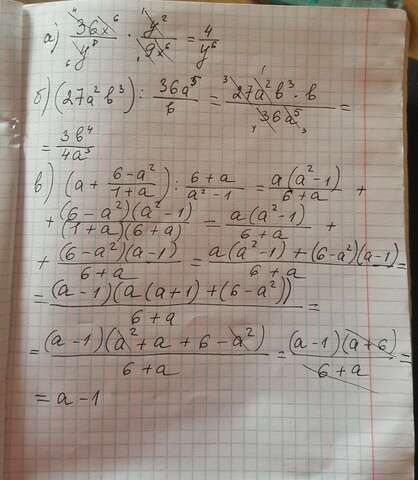 а) 36x⁶/y⁸ · y²/9x⁶ = 4/y⁶
б) (27a²b³) : 36a⁵/b = 27a²b³·b/36a⁵ =
= 3b⁴/4a³
в) (a + 6-a²/1+a) : 6+a/a²-1 = a(a²-1)/6+a +
+ (6-a²)(a²-1)/(1+a)(6+a) = a(a²-1)/6+a +
+ (6-a²)(a-1)/6+a = a(a²-1)+(6-a²)(a-1)/6+a =
= (a-1)(a(a+1)+(6-a²))/6+a =
= (a-1)(a²+a+6-a²)/6+a = (a-1)(a+6)/6+a =
= a-1